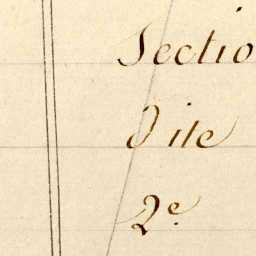 Sectio
Dite
2e.